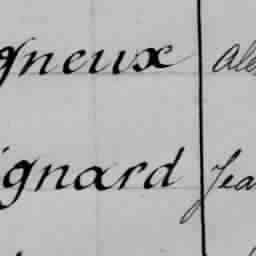 gneux Ale
gnard Jea